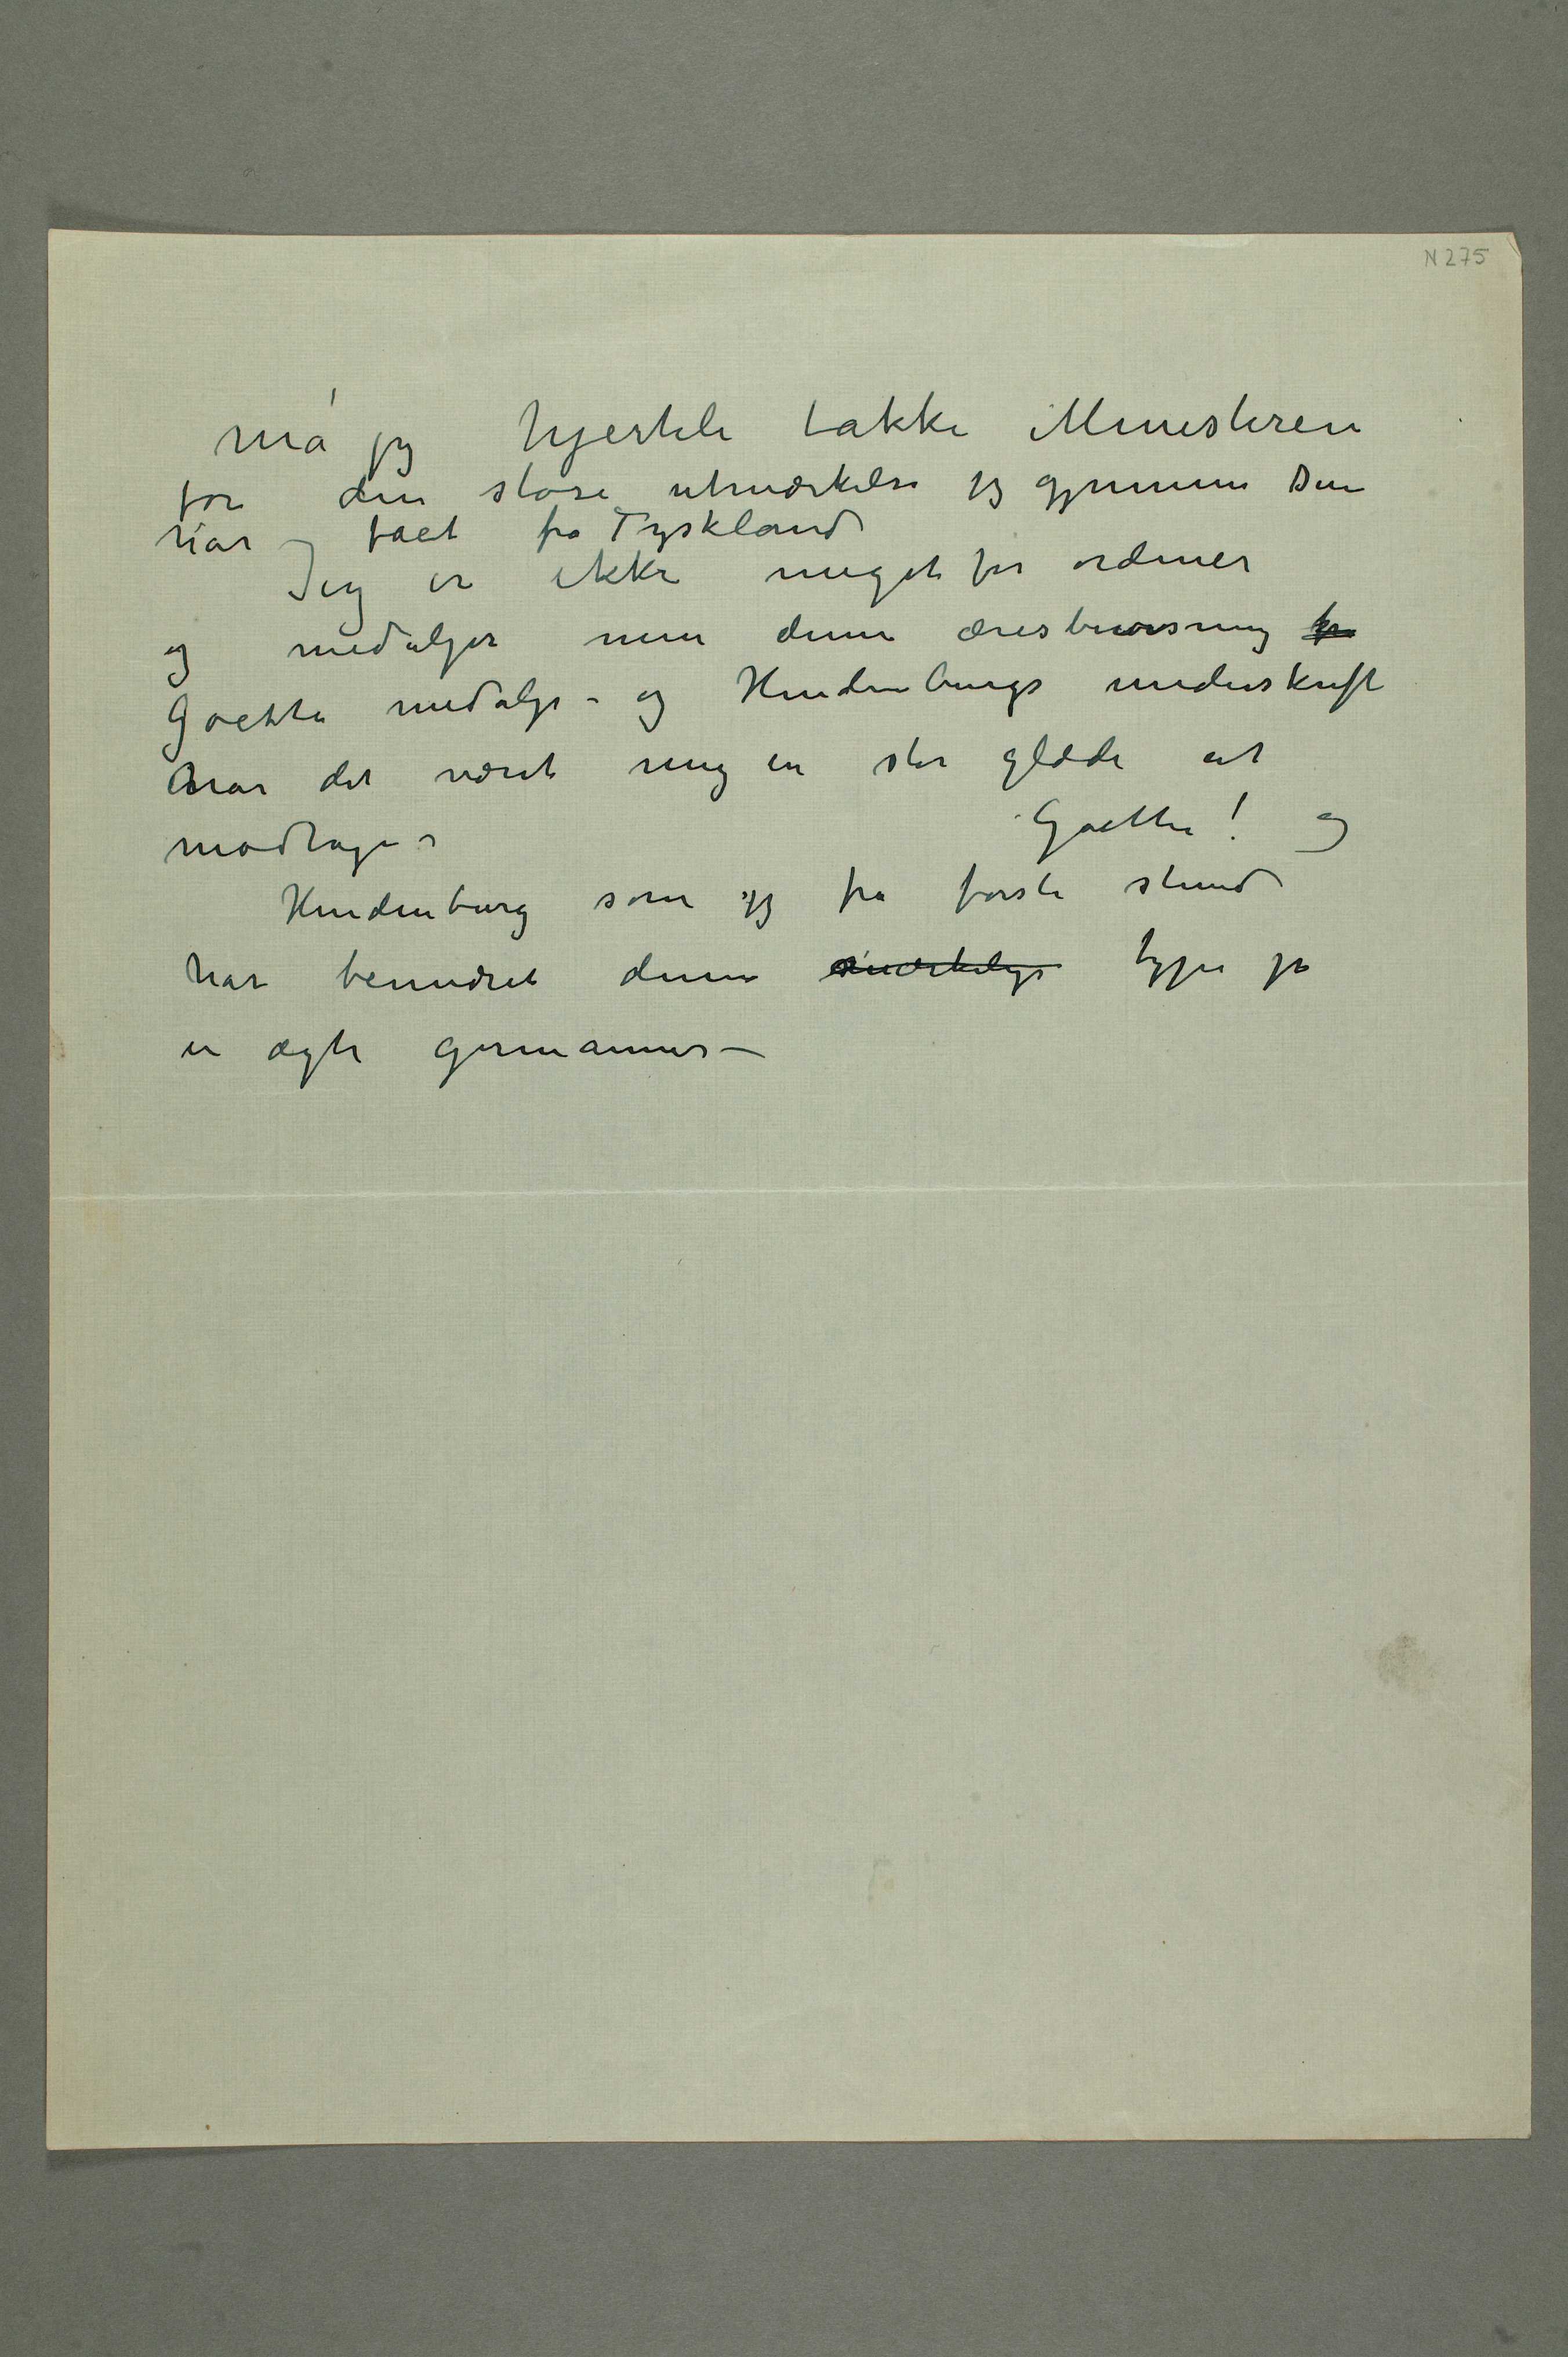 N 275
må jeg hjerteli takke Ministeren
for den store utmærkelse jeg gjennem Dem
har fået fra Tyskland
Jeg er ikke meget for ordener
og medaljer men denne æresbevisning
Goethe medalje – og Hindenburgs underskrift
har det været mig en stor glæde at
modtage –
Goethe! og
Hindenburg som jeg fra første stund
har beundret denne mærkelige type på
en ægte germanner –